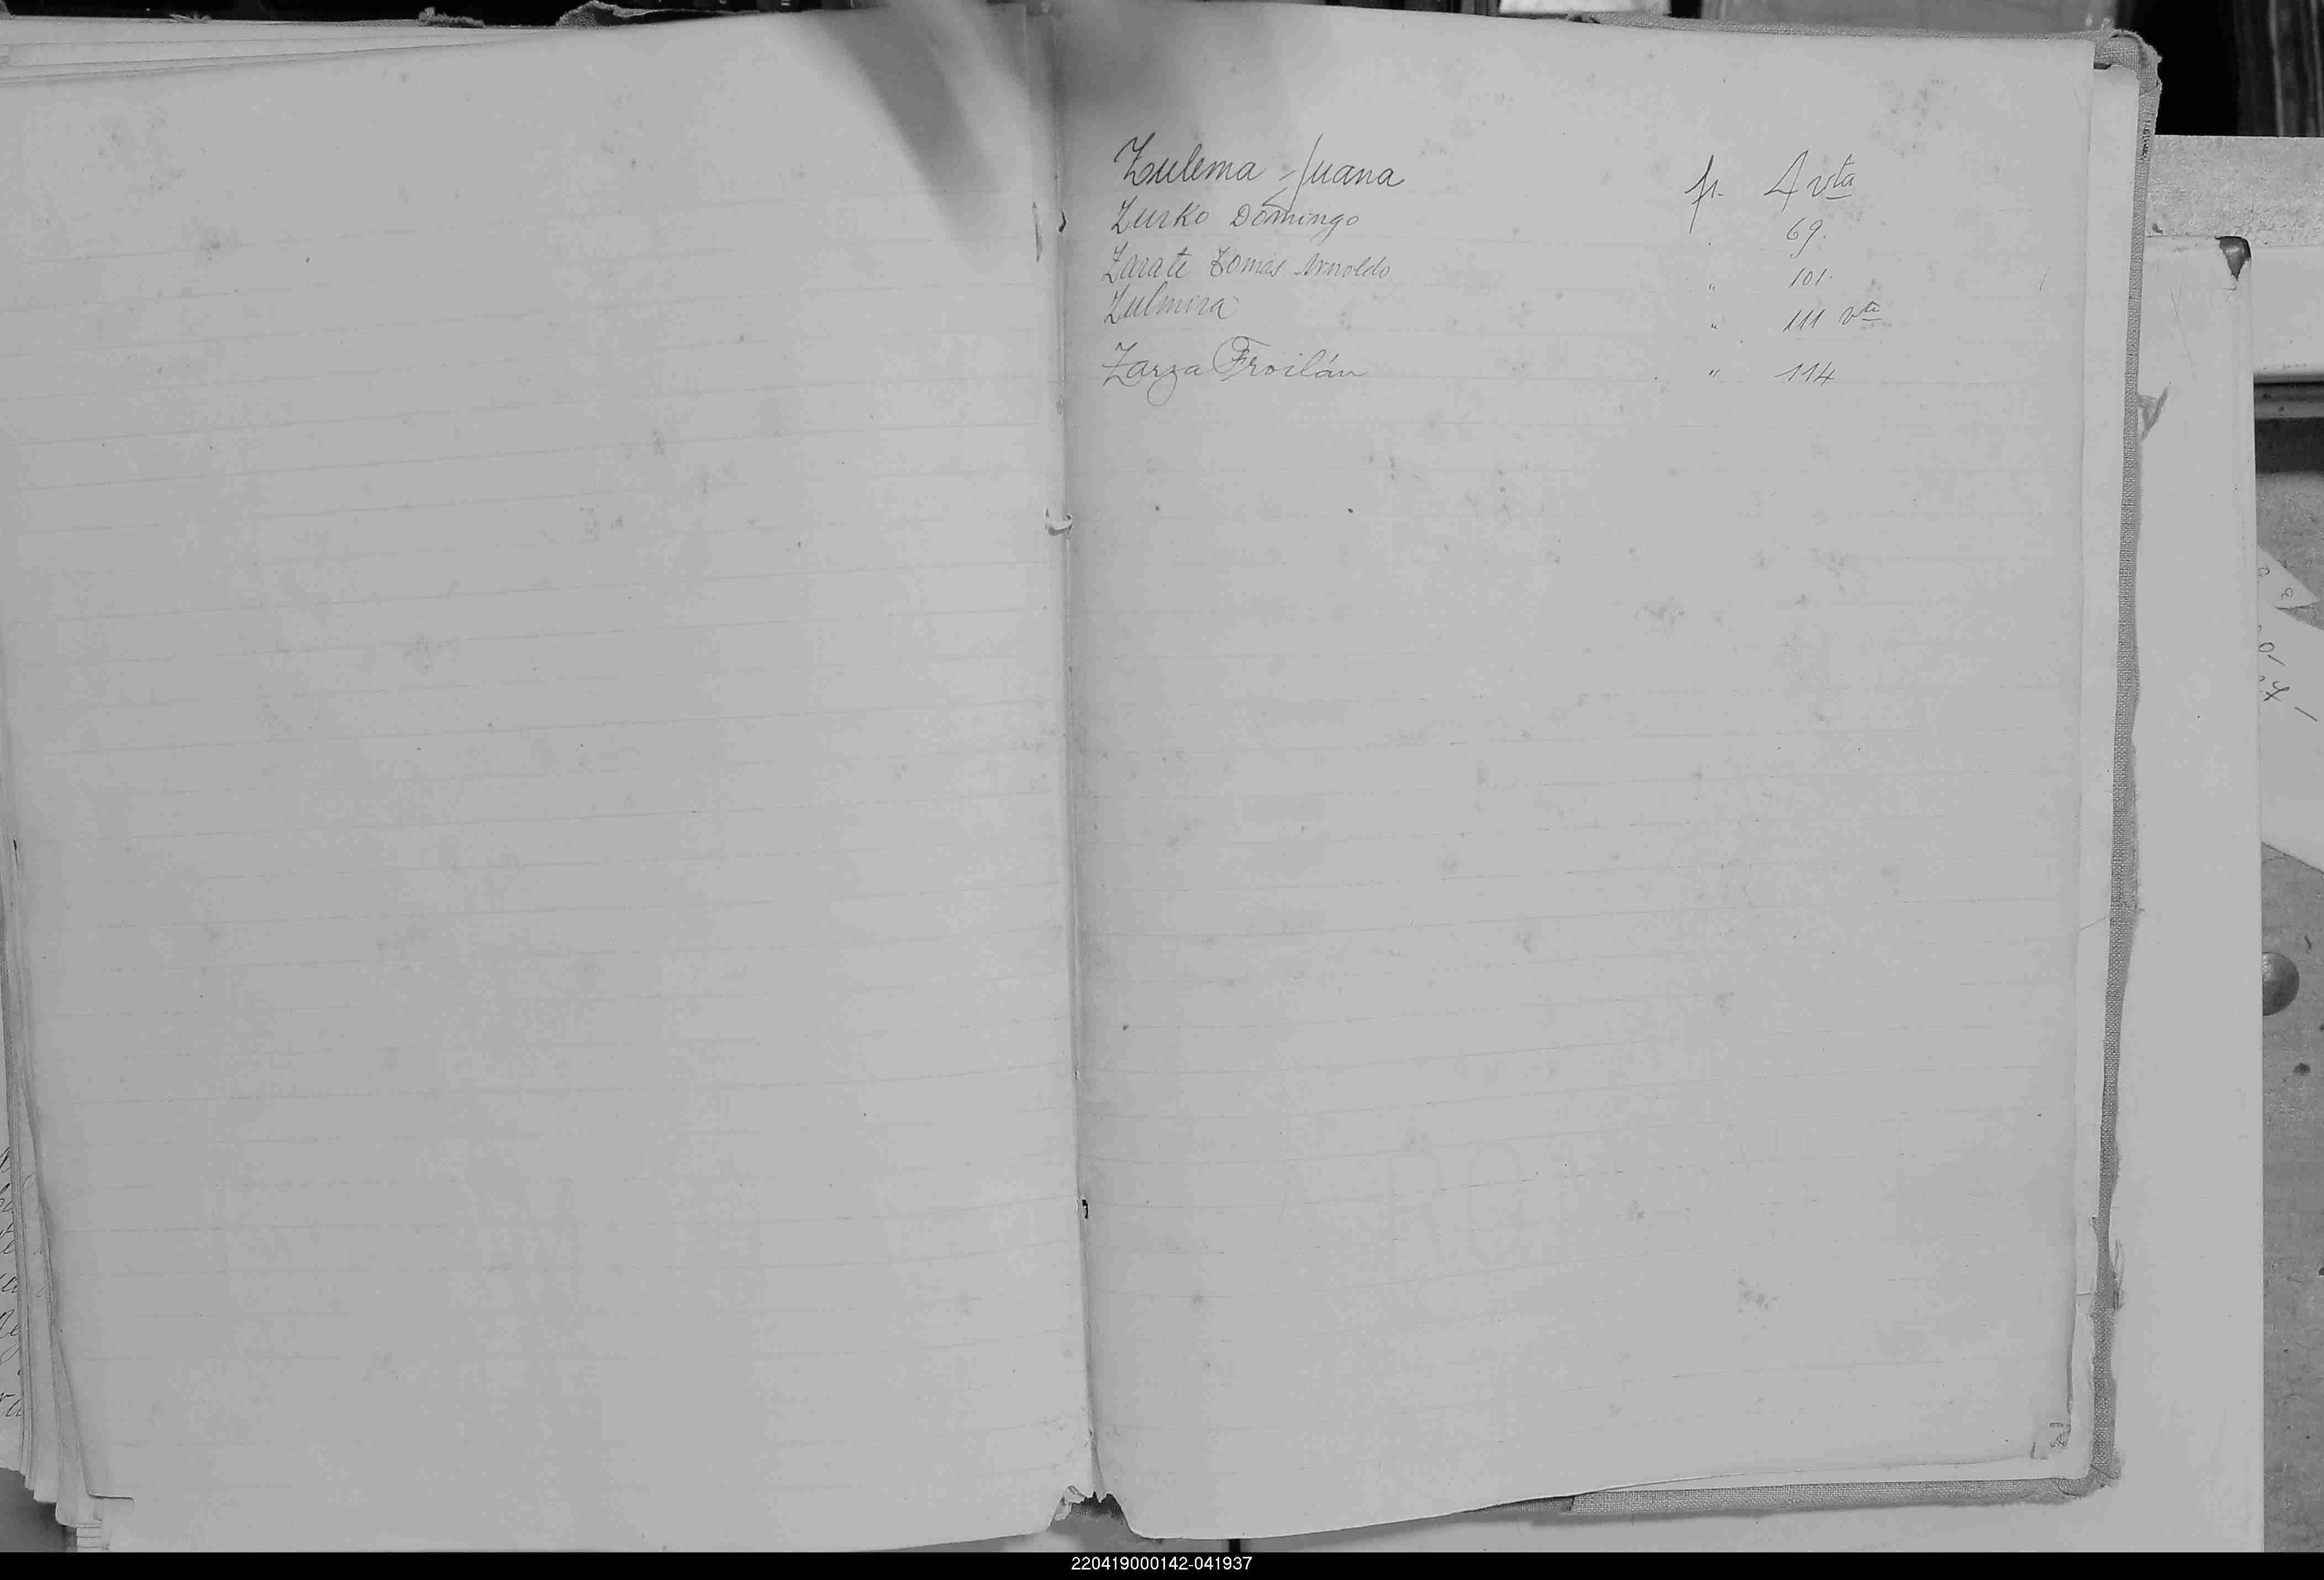 Zulema Juana fs. 4 vta
Zurko Domingo . 69.
Zarate Tomás Arnoldo " 101.
Zulmira " 111 vta
Zarza Froilán " 114
220419000142-041937